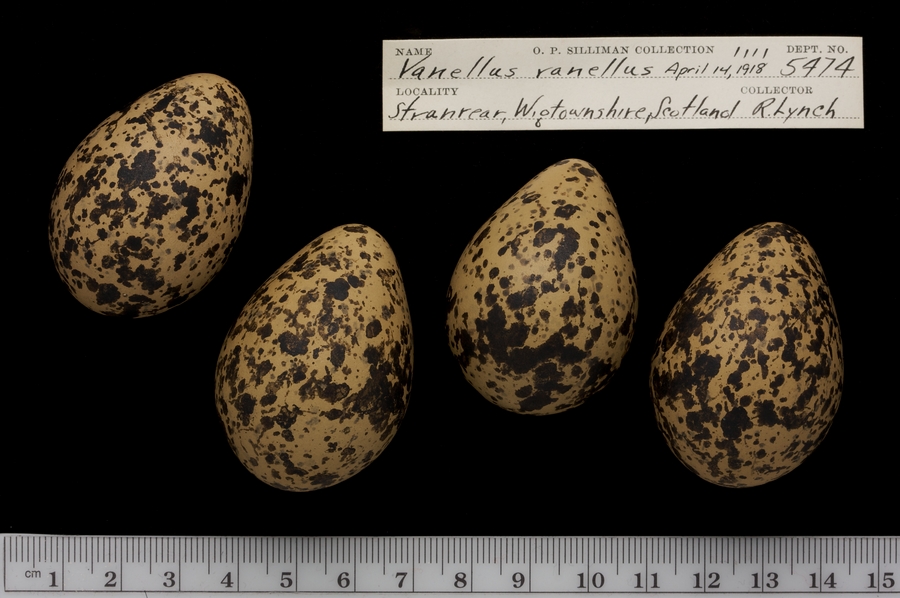 NAME O. P. SILLIMAN COLLECTION //// DEPT. NO.
Vanellus vanellus April 14, 1918 5474
LOCALITY COLLECTOR
Stranrear, Wigtownshire, Scotland R. Lynch
cm 1 2 3 4 5 6 7 8 9 10 11 12 13 14 15